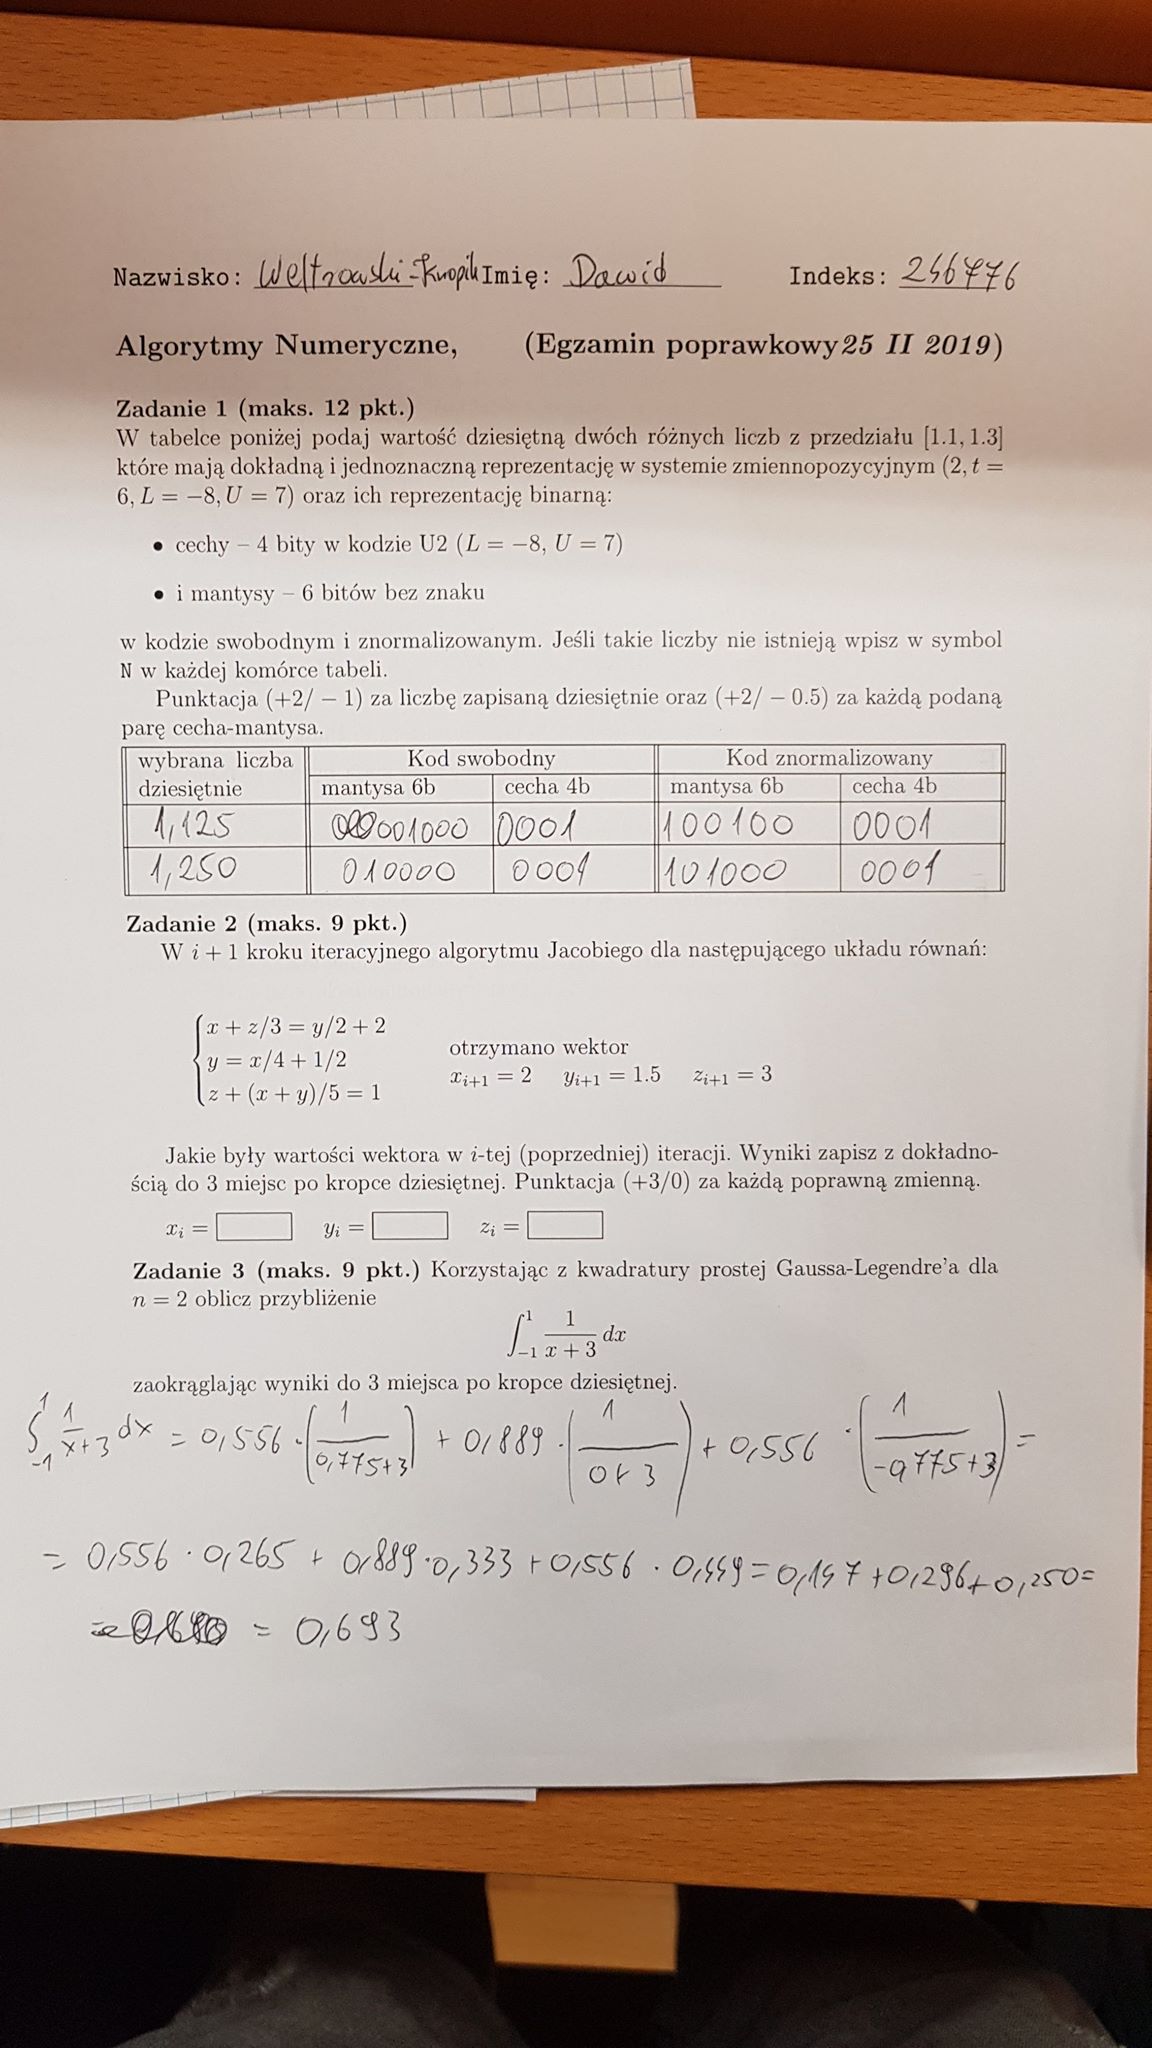 Nazwisko: Imię: Dawid Indeks:
Algorytmy Numeryczne, (Egzamin poprawkowy 25 II 2019)
Zadanie 1 (maks. 12 pkt.)
W tabelce poniżej podaj wartość dziesiętną dwóch różnych liczb z przedziału [1.1, 1.3]
które mają dokładną i jednoznaczną reprezentację w systemie zmiennopozycyjnym (2, t =
6, L = −8, U = 7) oraz ich reprezentację binarną:
• cechy – 4 bity w kodzie U2 (L = −8, U = 7)
• i mantysy – 6 bitów bez znaku
w kodzie swobodnym i znormalizowanym. Jeśli takie liczby nie istnieją wpisz w symbol
N w każdej komórce tabeli.
Punktacja (+2/ − 1) za liczbę zapisaną dziesiętnie oraz (+2/ − 0.5) za każdą podaną
parę cecha-mantysa.
wybrana liczba Kod swobodny Kod znormalizowany
dziesiętnie mantysa 6b cecha 4b mantysa 6b cecha 4b
1,125 001000 0001 100100 0001
1,250 010000 0001 101000 0001
Zadanie 2 (maks. 9 pkt.)
W i + 1 kroku iteracyjnego algorytmu Jacobiego dla następującego układu równań:
x + z/3 = y/2 + 2
y = x/4 + 1/2 otrzymano wektor
z + (x + y)/5 = 1 xi+1 = 2 yi+1 = 1.5 zi+1 = 3
Jakie były wartości wektora w i-tej (poprzedniej) iteracji. Wyniki zapisz z dokładno-
ścią do 3 miejsc po kropce dziesiętnej. Punktacja (+3/0) za każdą poprawną zmienną.
xi = yi = zi =
Zadanie 3 (maks. 9 pkt.) Korzystając z kwadratury prostej Gaussa-Legendre'a dla
n = 2 oblicz przybliżenie
∫₋₁¹ 1/(x + 3) dx
zaokrąglając wyniki do 3 miejsca po kropce dziesiętnej.
∫₋₁¹ 1/(x+3) dx = 0,556 · (1/(0,775+3)) + 0,889 · (1/(0+3)) + 0,556 · (1/(-0,775+3)) =
= 0,556 · 0,265 + 0,889 · 0,333 + 0,556 · 0,449 = 0,147 + 0,296 + 0,250 =
= 0,693